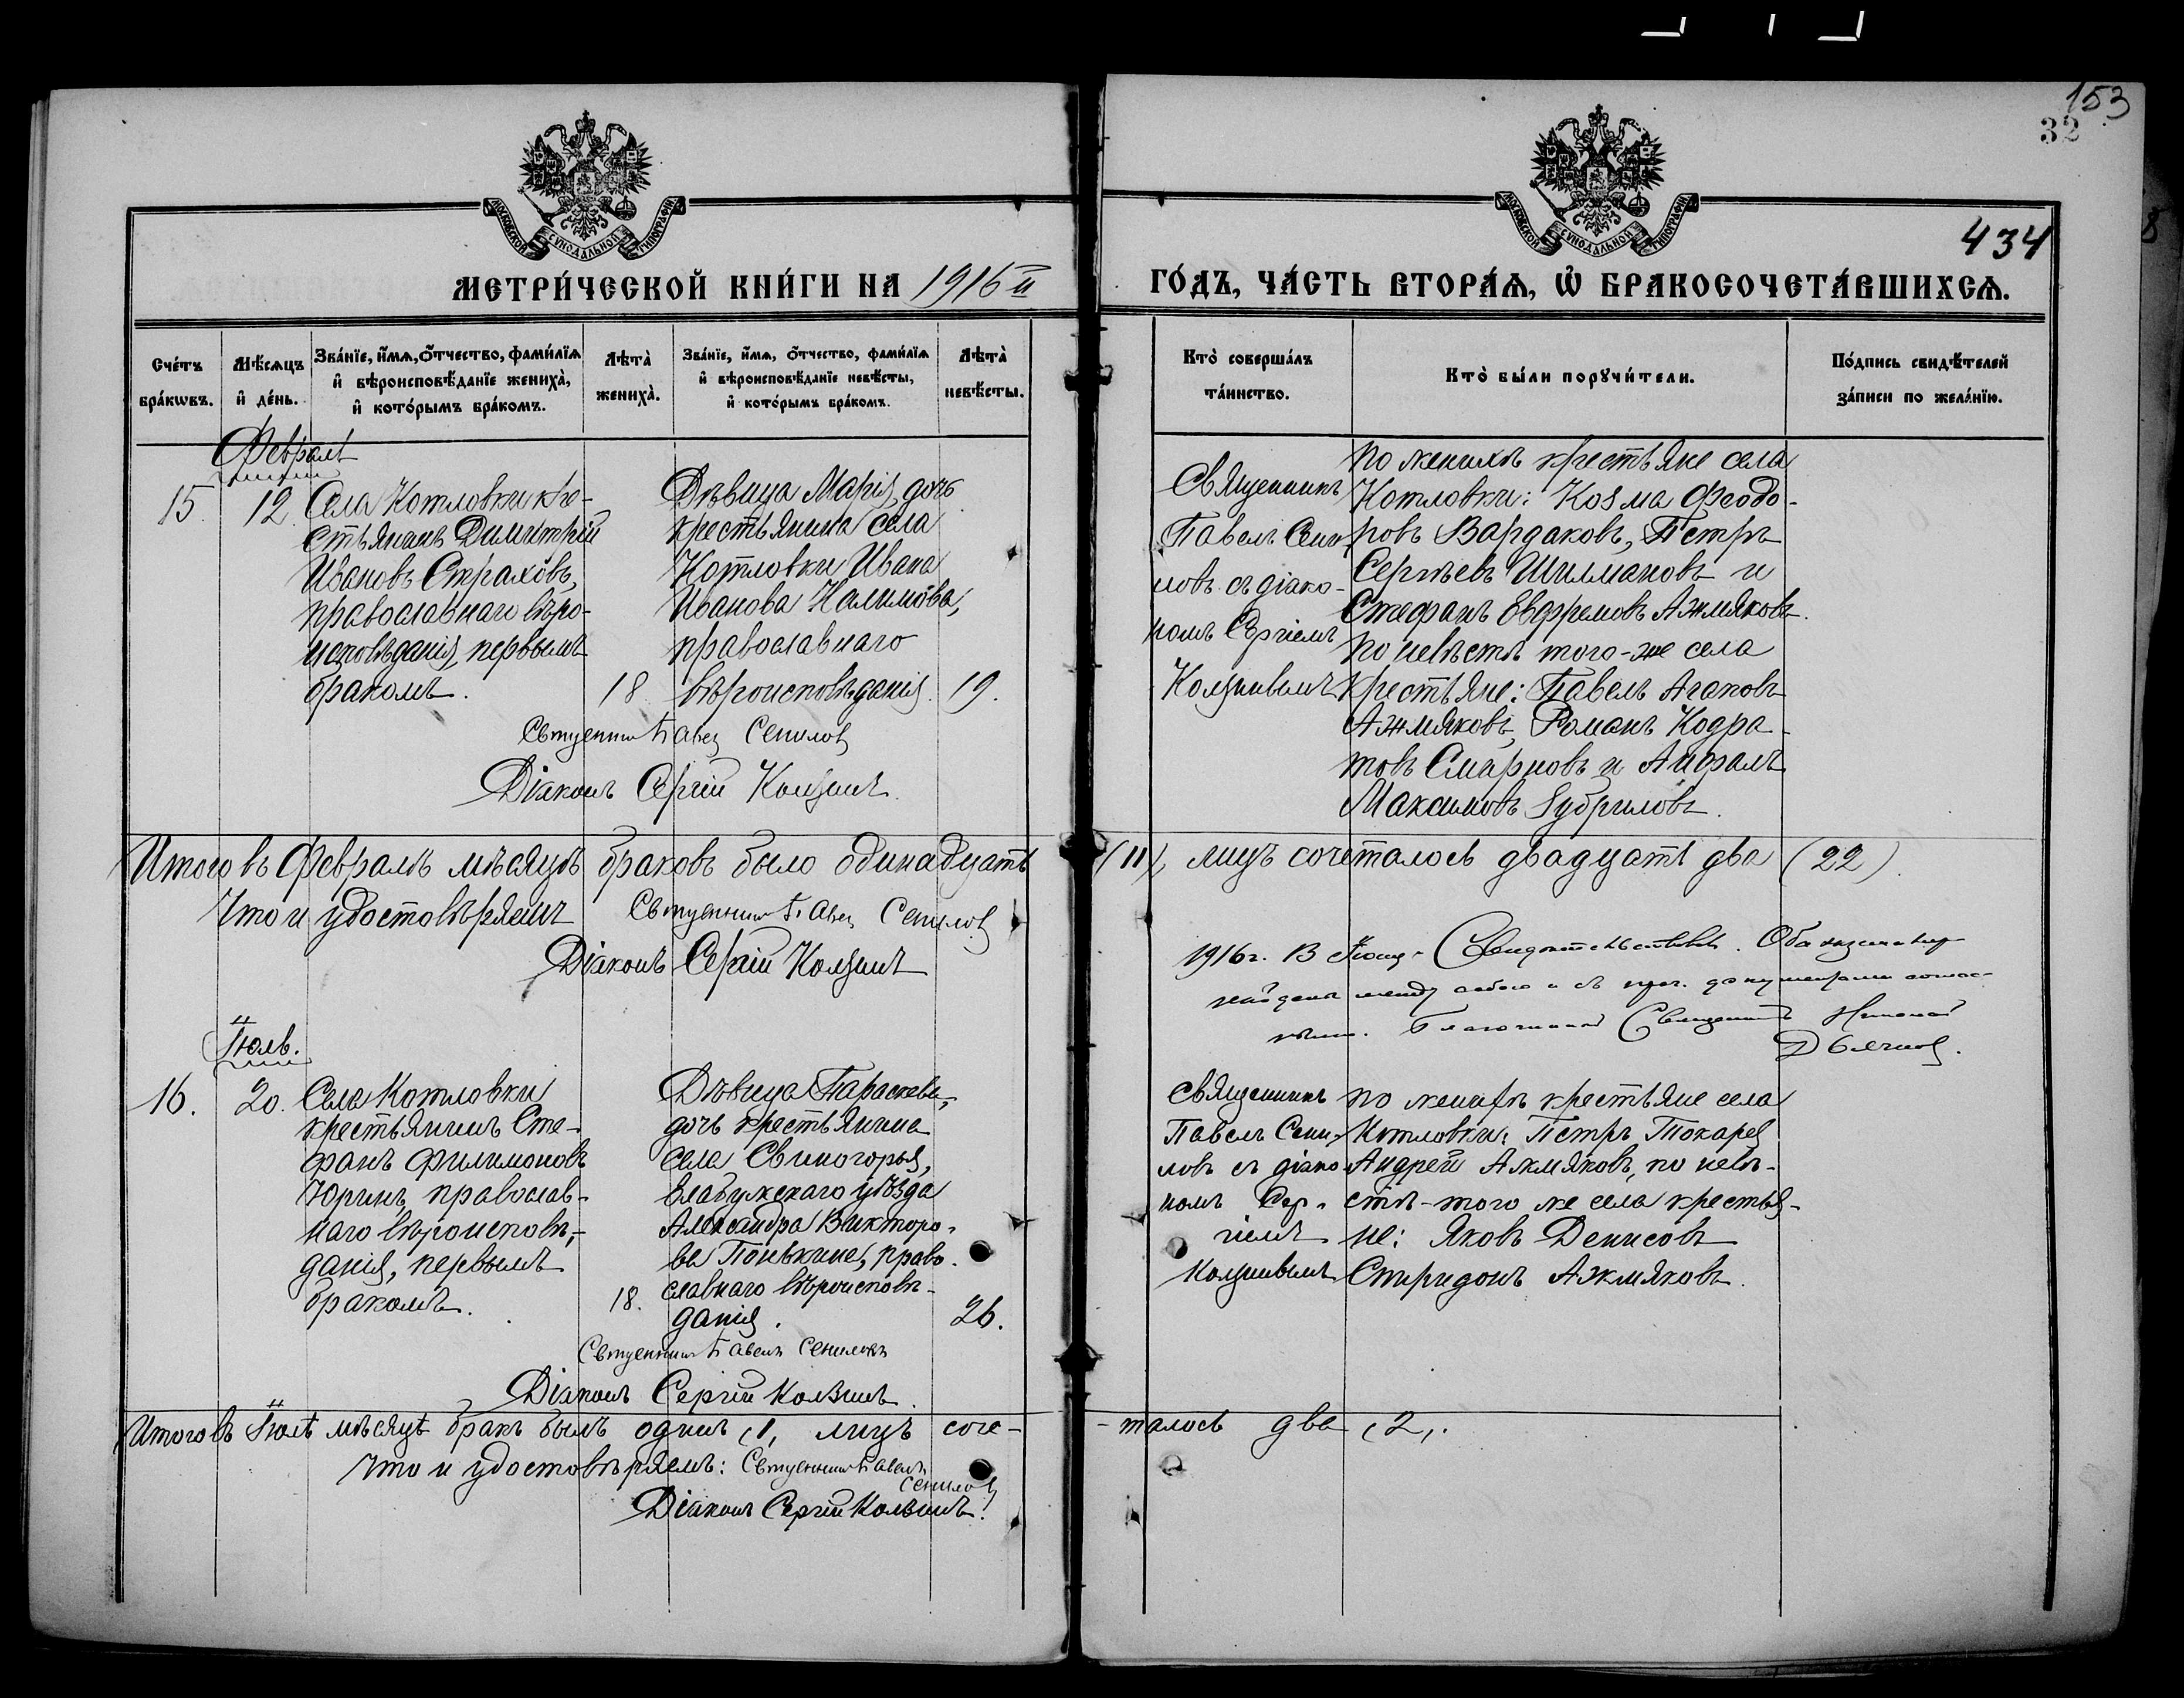 153
32
434
МОСКОВСКОЙ СѴНОДАЛЬНОЙ ТИПОГРАФІИ
МОСКОВСКОЙ СѴНОДАЛЬНОЙ ТИПОГРАФІИ
МЕТРИ́ЧЕСКОЙ КНИ́ГИ НА 1916 й
ГО́ДЪ, ЧА́СТЬ ВТОРА́Ѧ, Ѡ҆ БРАКОСОЧЕТА́ВШИХСѦ.
Сче́тъ бра́кѡвъ.
Мѣ́сѧцъ и҆ де́нь.
Зва́нїе, и҆́мѧ, ѻ҆́тчество, фами́лїѧ и҆ вѣроисповѣ́данїе жениха̀, и҆ кото́рымъ бра́комъ.
Лѣта̀ жениха̀.
Зва́нїе, и҆́мѧ, ѻ҆́тчество, фами́лїѧ и҆ вѣроисповѣ́данїе невѣ́сты, и҆ кото́рымъ бра́комъ.
Лѣта̀ невѣ́сты.
Кто̀ соверша́лъ та́инство.
Кто̀ бы́ли порꙋчи́тели.
По́дпись свидѣ́телей за́писи по жела́нїю.
Февраль
15. 12.
Села Котловки кре-
стьянинъ Димитрій
Ивановъ Страховъ,
православнаго вѣро-
исповѣданія, первымъ
бракомъ.
18.
Дѣвица Марія, дочь
крестьянина села
Котловки Ивана
Иванова Налимова,
православнаго
вѣроисповѣданія.
19.
Священникъ
Павелъ Сени
ловъ съ діако-
номъ Сергіемъ
Колзинымъ
По женихѣ крестьяне села
Котловки: Козма Феодо-
ровъ Вардаковъ, Петръ
Сергѣевъ Шилмаковъ и
Стефанъ Евфремовъ Ажмяковъ.
По невѣстѣ того-же села
крестьяне: Павелъ Агаповъ
Ажмяковъ, Романъ Кодра-
товъ Смирновъ и
Максимовъ
Священникъ Павелъ Сениловъ
Діаконъ Сергій Колзинъ.
Итого въ Февралѣ мѣсяцѣ браковъ было одинадцать
(11), лицъ сочеталось двадцать два (22).
Что и удостовѣряемъ Священникъ Павелъ Сениловъ
Діаконъ Сергій Колзинъ
1916 г. В
между собою и съ документами
Благочинный Священникъ Николай
Дьячков.
Іюль.
16. 20.
Села Котловки
крестьянинъ Сте-
фанъ Филимоновъ
Юринъ, православ-
наго вѣроисповѣ-
данія, первымъ
бракомъ.
18.
Дѣвица Параскева,
дочь крестьянина
села Свиногорья,
Елабужскаго уѣзда
Александра Викторо-
ва Понькина, право-
славнаго вѣроисповѣ-
данія.
26.
Священникъ
Павелъ Сени-
ловъ съ діако
номъ Сер-
гіемъ
Колзинымъ
по женихѣ крестьяне села
Котловки: Петръ Токарев
Андрей Ажмяковъ, по невѣ-
стѣ - того же села крестья-
не: Яковъ Денисовъ
Спиридонъ Ажмяковъ.
Священникъ Павелъ Сениловъ
Діаконъ Сергій Колзинъ.
Итого въ Іюлѣ мѣсяцѣ бракъ былъ одинъ (1, лицъ соче-
-талось два (2,.
Что и удостовѣряемъ: Священникъ Павелъ
Сениловъ
Діаконъ Сергій Колзинъ.